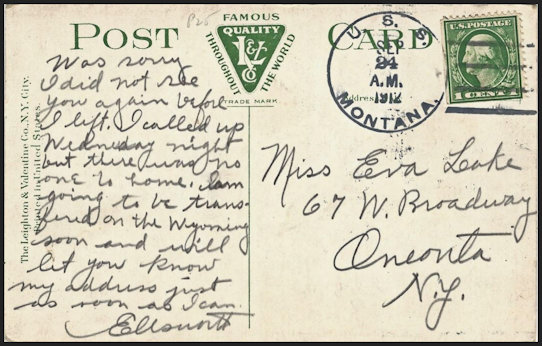 P25
POST CARD
FAMOUS
QUALITY
L & V
Co
THROUGHOUT THE WORLD
TRADE MARK
U.S.S.
24
A.M.
1912
MONTANA.
U.S. POSTAGE
1 CENT 1
The Leighton & Valentine Co., N.Y. City.
Printed in United States.
Was sorry
I did not see
you again before
I left. I called up
Wednesday night
but there was no
one to home. Iam
going to be trans-
fered on the Wyoming
soon and will
let you know
my address just
as soon as I can.
Ellsworth
Miss Eva Lake
67 W. Broadway
Oneonta
N.Y.